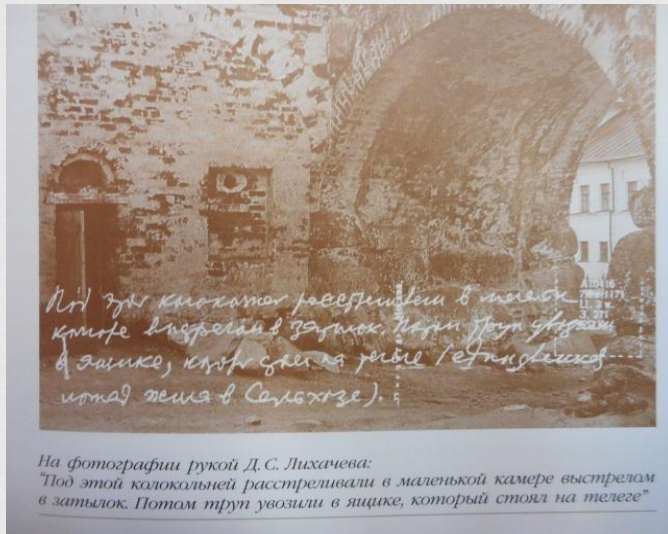 Под этой колокольней расстреливали в маленькой
камере выстрелом в затылок. Потом труп увозили
в ящике, который стоял на телеге
лошадь жила в Сельхозе).
На фотографии рукой Д. С. Лихачева:
"Под этой колокольней расстреливали в маленькой камере выстрелом
в затылок. Потом труп увозили в ящике, который стоял на телеге"